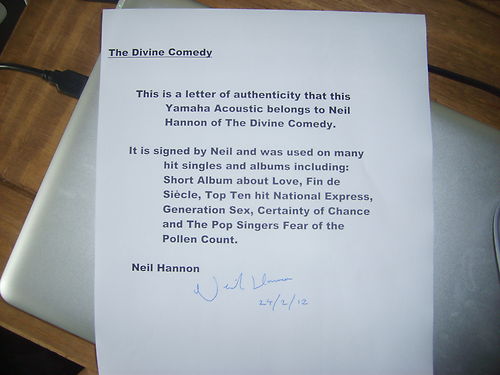 The Divine Comedy
This is a letter of authenticity that this
Yamaha Acoustic belongs to Neil
Hannon of The Divine Comedy.
It is signed by Neil and was used on many
hit singles and albums including:
Short Album about Love, Fin de
Siècle, Top Ten hit National Express,
Generation Sex, Certainty of Chance
and The Pop Singers Fear of the
Pollen Count.
Neil Hannon
Neil Hannon
24/2/12